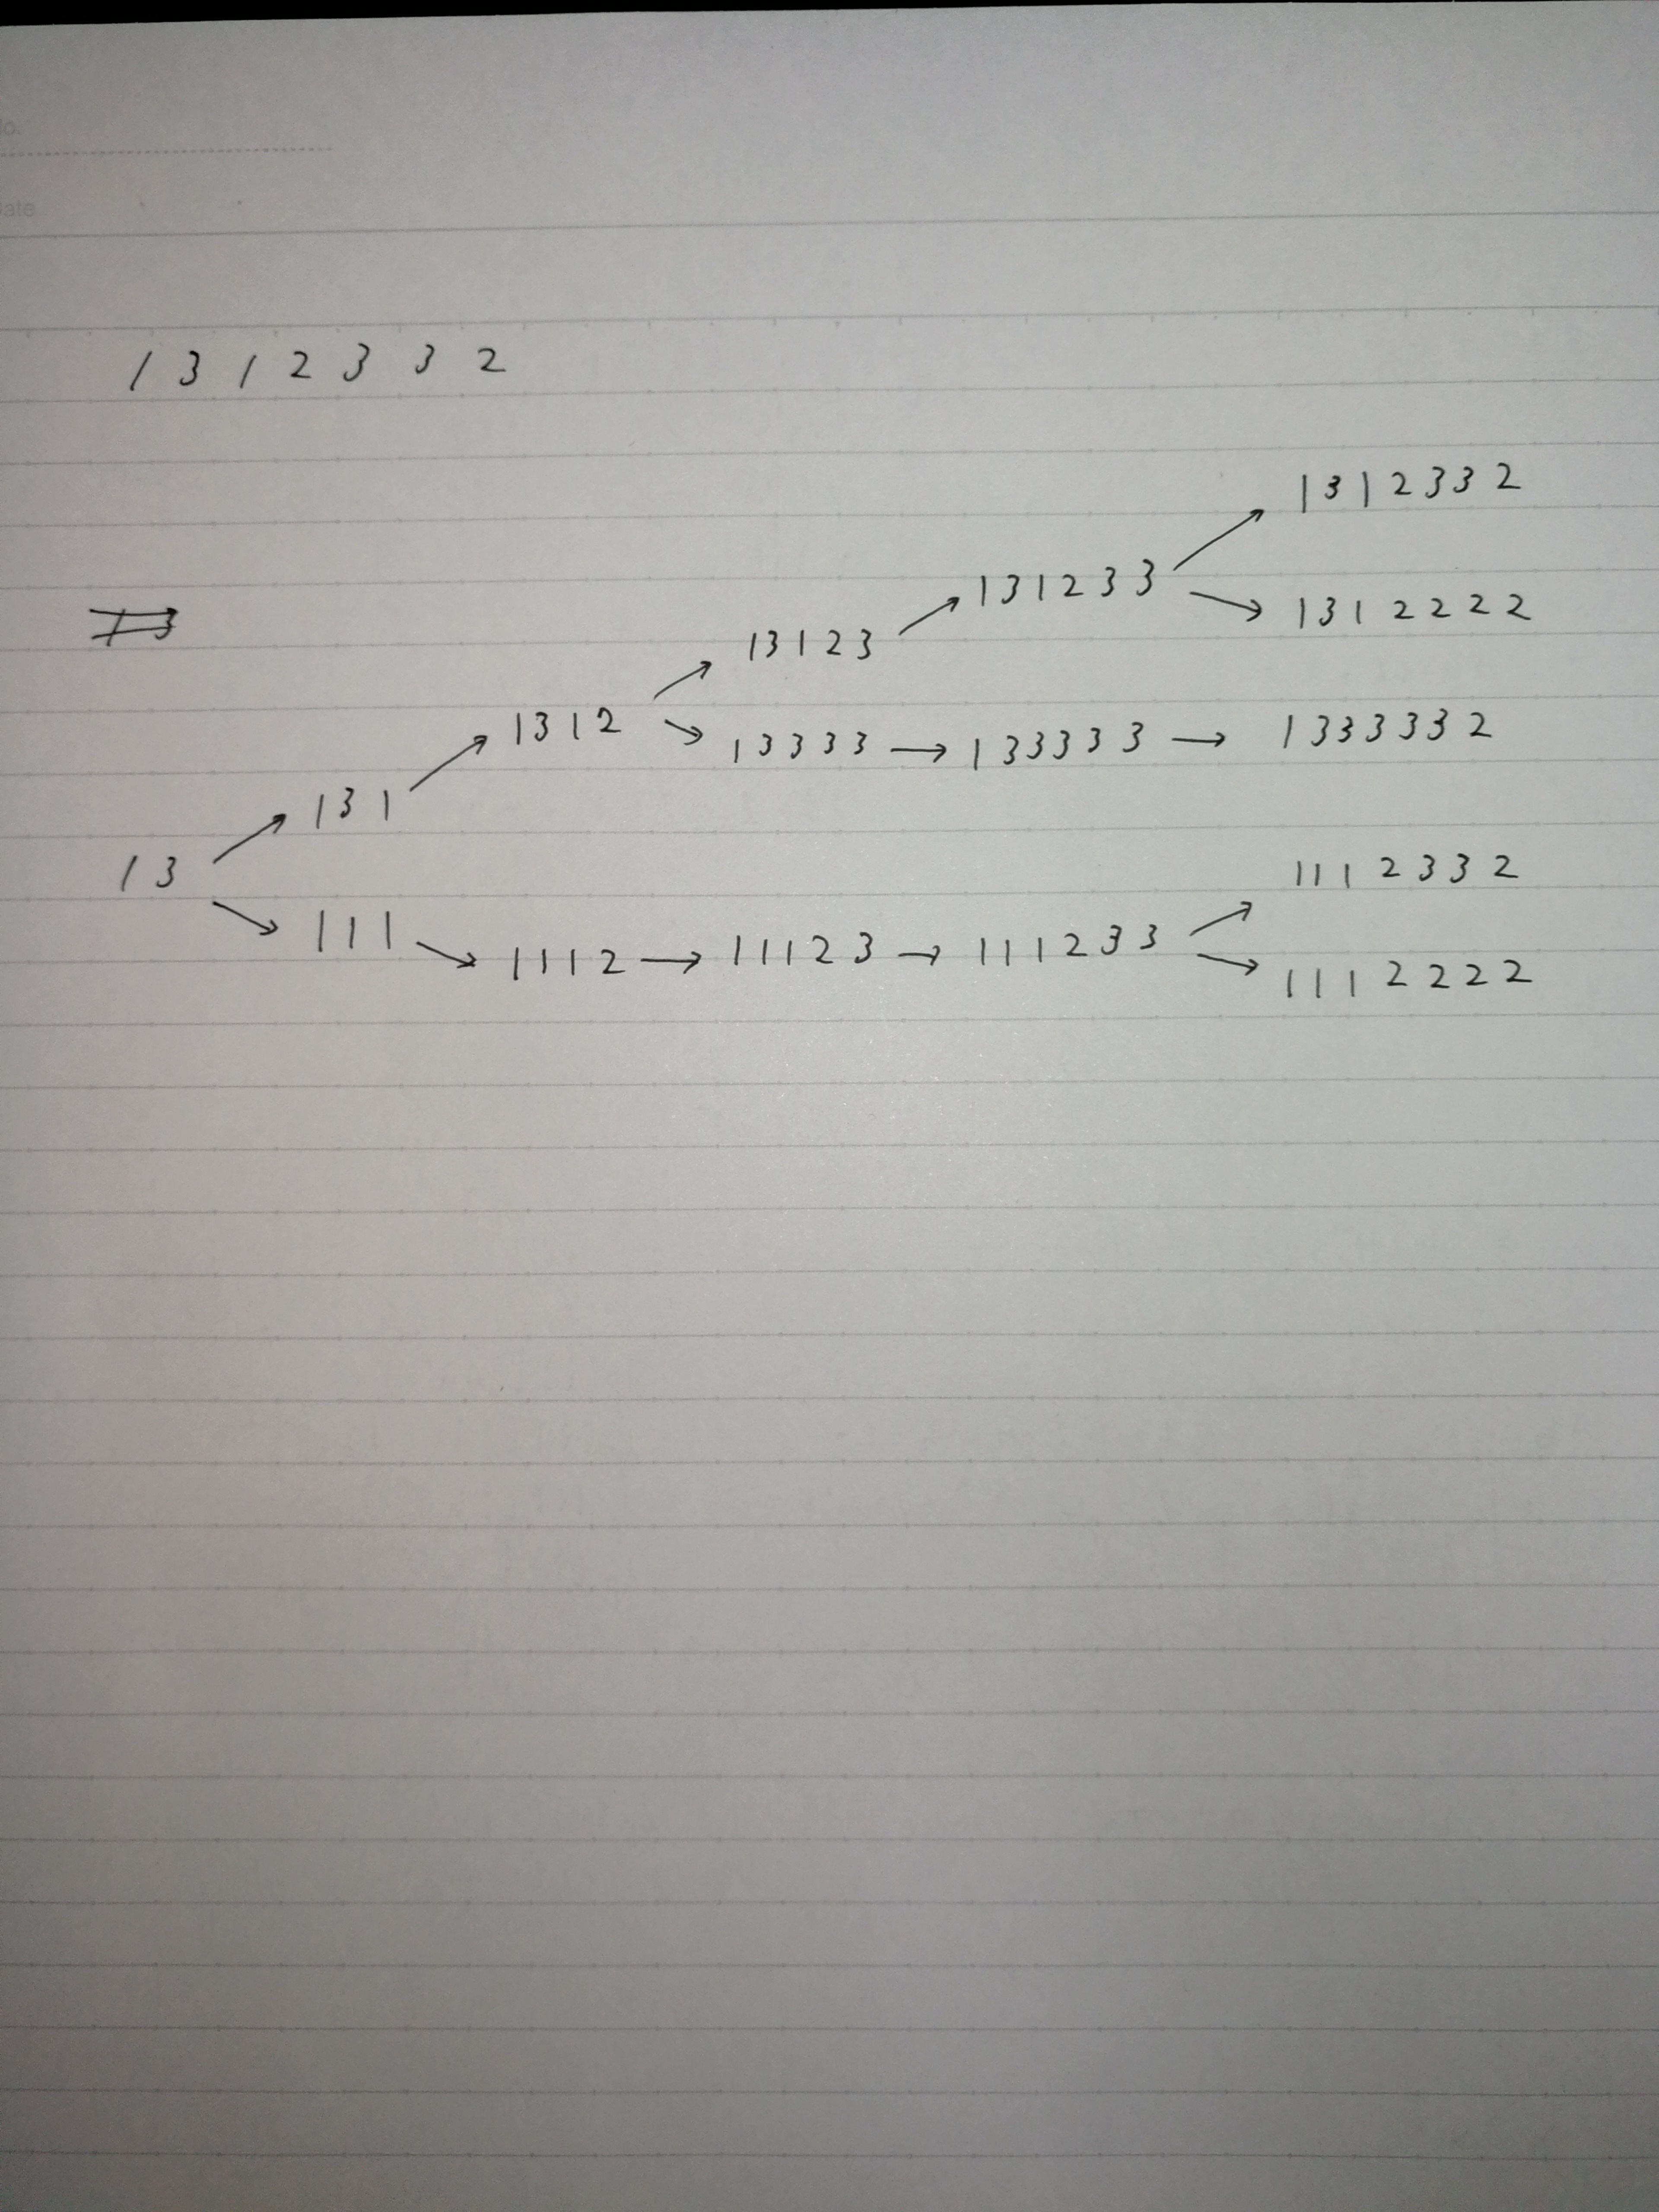 1 3 1 2 3 3 2
1 3 1 2 3 3 2
1 3 1 2 3 3
1 3 1 2 2 2 2
1 3 1 2 3
1 3 1 2
1 3 3 3 3 → 1 3 3 3 3 3 → 1 3 3 3 3 3 2
1 3 1
1 3
1 1 1 2 3 3 2
1 1 1
1 1 1 2 → 1 1 1 2 3 → 1 1 1 2 3 3
1 1 1 2 2 2 2